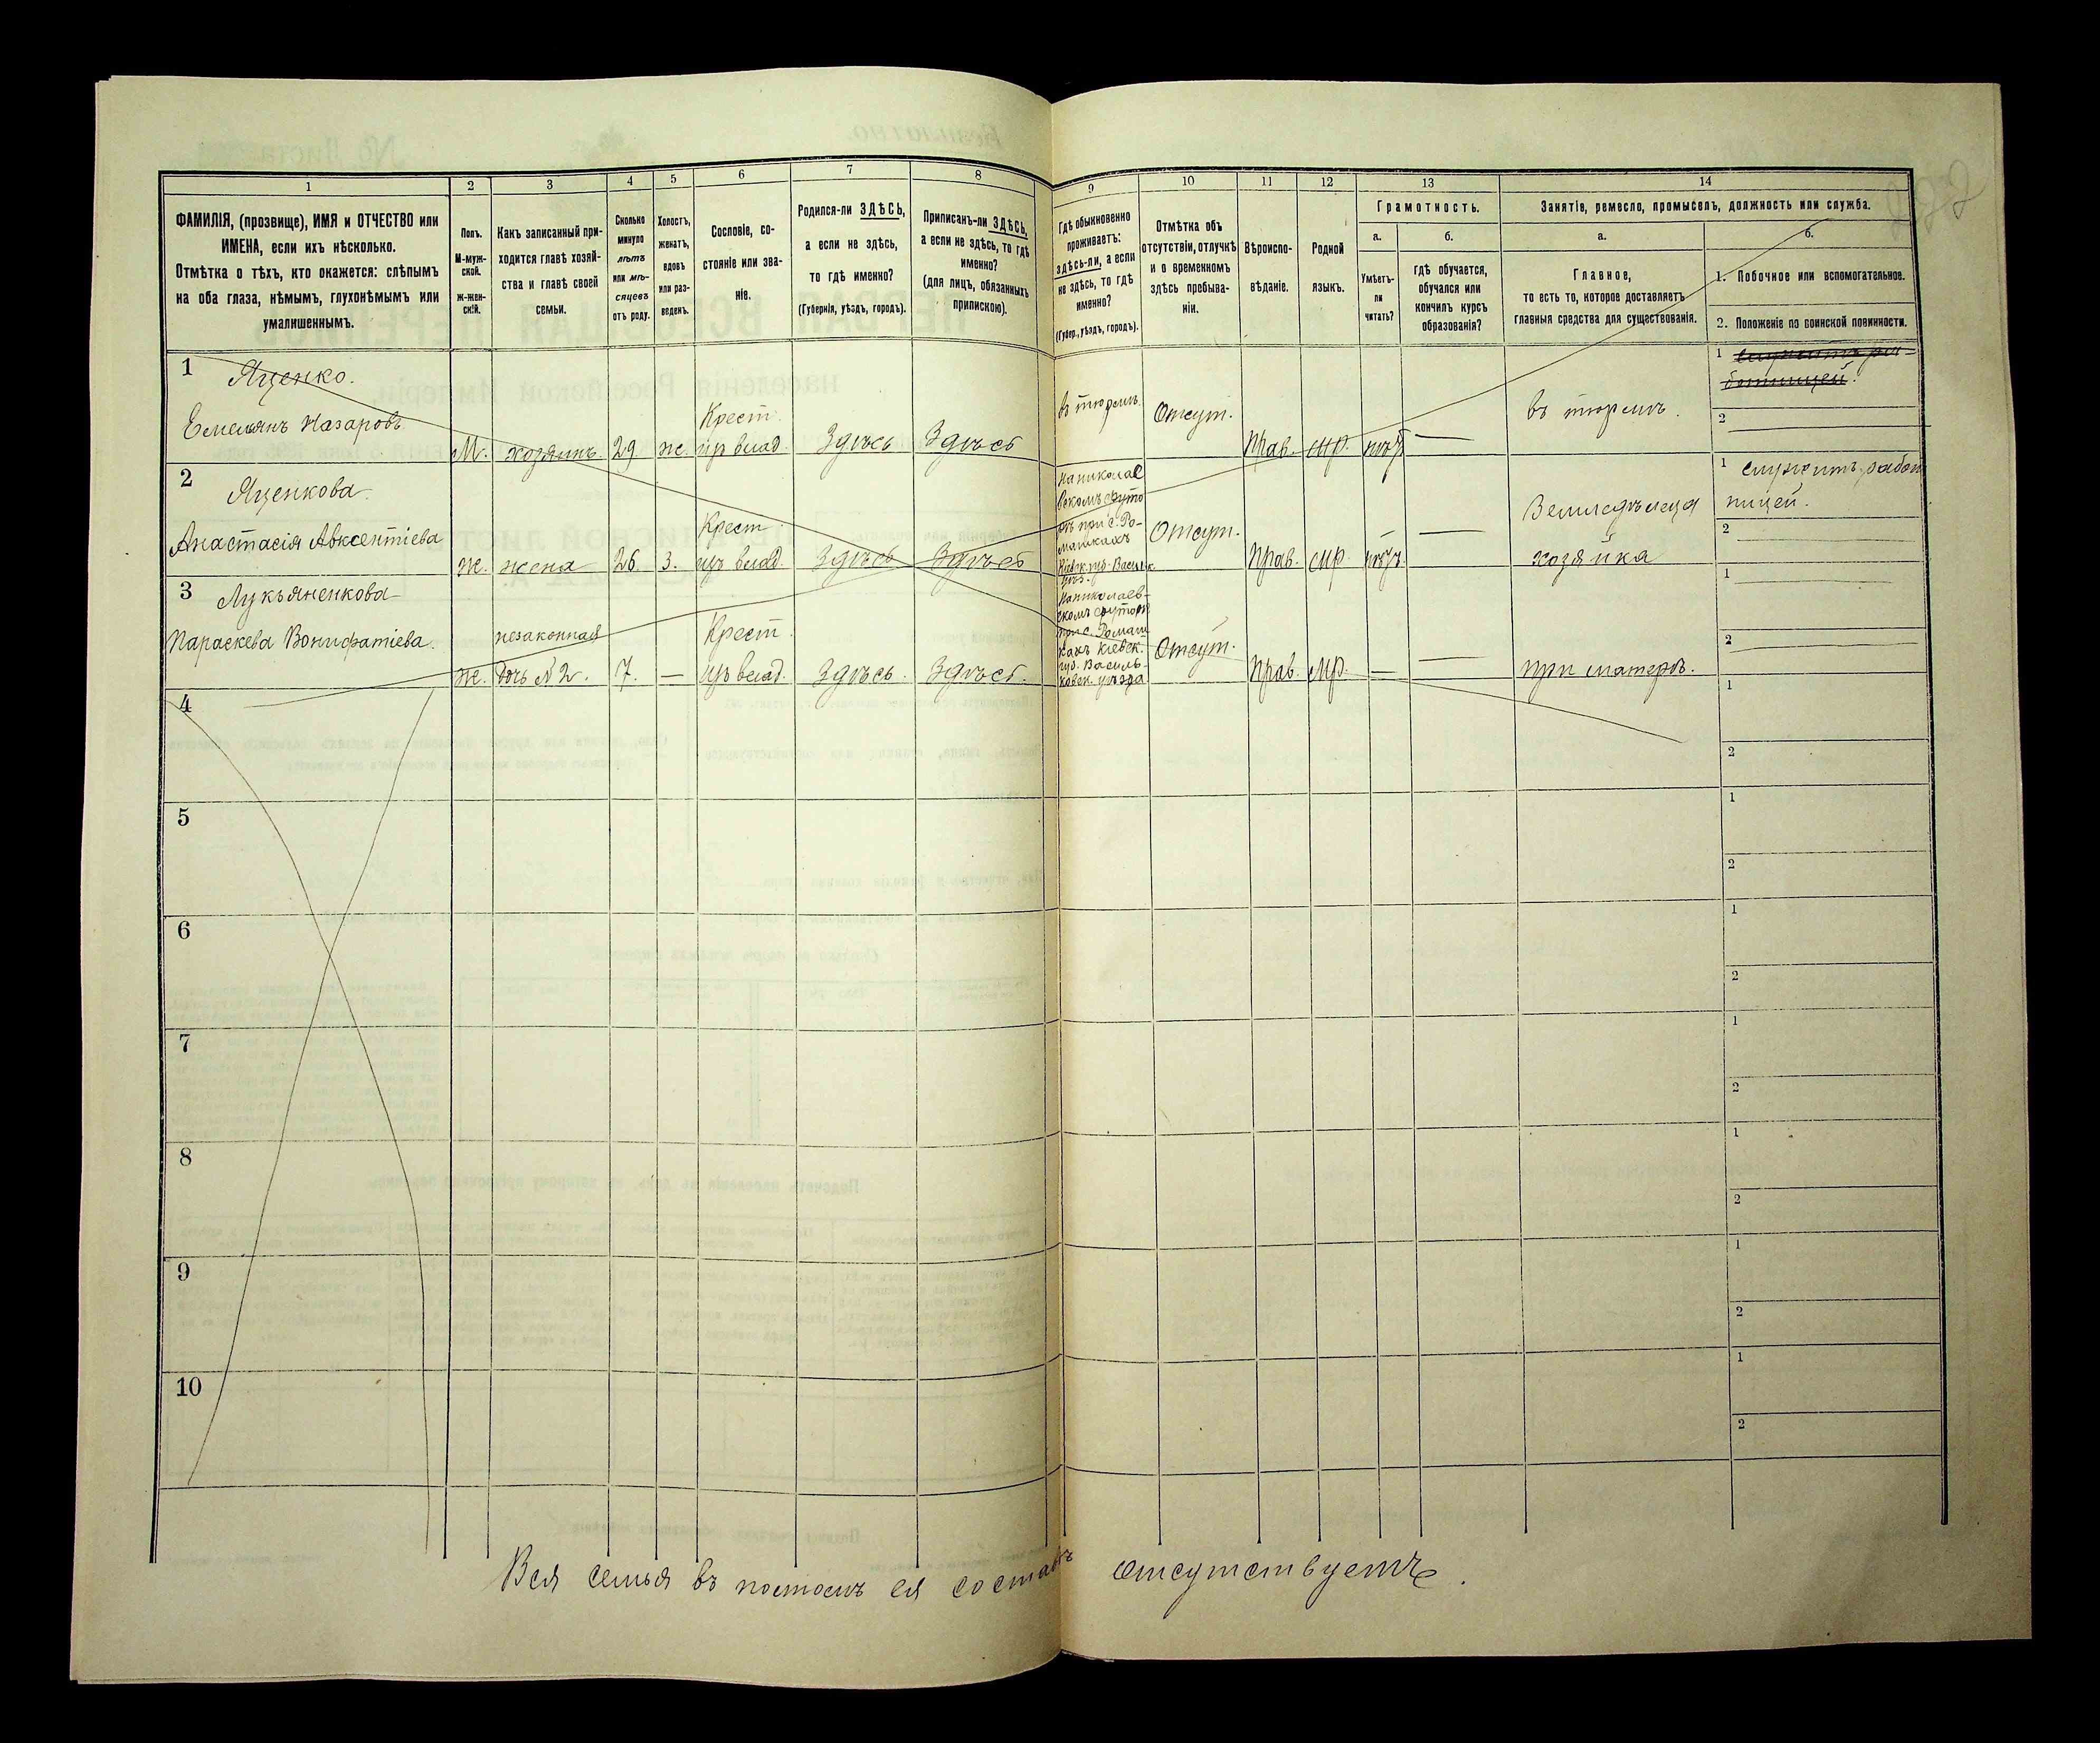 1 2 3 4 5 6 7 8 9 10 11 12 13 14
ФАМИЛІЯ, (прозвище), ИМЯ и ОТЧЕСТВО или
ИМЕНА, если ихъ нѣсколько.
Отмѣтка о тѣхъ, кто окажется: слѣпымъ
на оба глаза, нѣмымъ, глухонѣмымъ или
умалишеннымъ.
Полъ.
М-муж-
ской.
Ж-жен-
скій.
Какъ записанный при-
ходится главѣ хозяй-
ства и главѣ своей
семьи.
Сколько
минуло
лѣтъ
или мѣ-
сяцевъ
отъ роду.
Холостъ,
женатъ,
вдовъ
или раз-
веденъ.
Сословіе, со-
стояніе или зва-
ніе.
Родился-ли ЗДѢСЬ,
а если не здѣсь,
то гдѣ именно?
(Губернія, уѣздъ, городъ).
Приписанъ-ли ЗДѢСЬ,
а если не здѣсь, то гдѣ
именно?
(для лицъ, обязанныхъ
припискою).
Гдѣ обыкновенно
проживаетъ:
здѣсь-ли, а если
не здѣсь, то гдѣ
именно?
(Губер., уѣздъ, городъ).
Отмѣтка объ
отсутствіи, отлучкѣ
и о временномъ
здѣсь пребыва-
ніи.
Вѣроиспо-
вѣданіе.
Родной
языкъ.
Грамотность.
а.
Умѣетъ-
ли
читать?
б.
гдѣ обучается,
обучался или
кончилъ курсъ
образованія?
Занятіе, ремесло, промыселъ, должность или служба.
а.
Главное,
то есть то, которое доставляетъ
главныя средства для существованія.
б.
1. Побочное или вспомогательное.
2. Положеніе по воинской повинности.
1 Яценко.
Емельянъ Назаровъ
М. хозяинъ 29 же.
Крест.
изъ влад.
Здѣсь Здѣсь
въ тюрьмѣ.
Отсут.
Прав. мр. нѣтъ —
въ тюрьмѣ.
1 служитъ ра-
ботницей.
2
2 Яценкова.
Анастасія Авксентіева
Ж. жена 26 з.
Крест.
изъ влад.
Здѣсь Здѣсь
На николаев
скомъ хуто
рѣ при с. Ро-
машкахъ
Кіевск. губ. Васильк.
уѣз.
Отсут.
Прав. мр нѣтъ —
Земледѣлица
хозяйка
1 служитъ работ
ницей.
2
3 Лукьяненкова
Параскева Вонифатіева.
Ж.
незаконная
дочь №2.
7. —
Крест.
изъ влад.
Здѣсь. Здѣсь.
На николаев-
скомъ хуторѣ
при с. Ромаш
кахъ Кіевск.
губ. Василь-
ковск. уѣзда
Отсут.
Прав. мр. — —
при матери.
1
2
4
1
2
5
1
2
6
1
2
7
1
2
8
1
2
9
1
2
10
1
2
Вся семья въ полномъ ея составѣ отсутствуетъ.